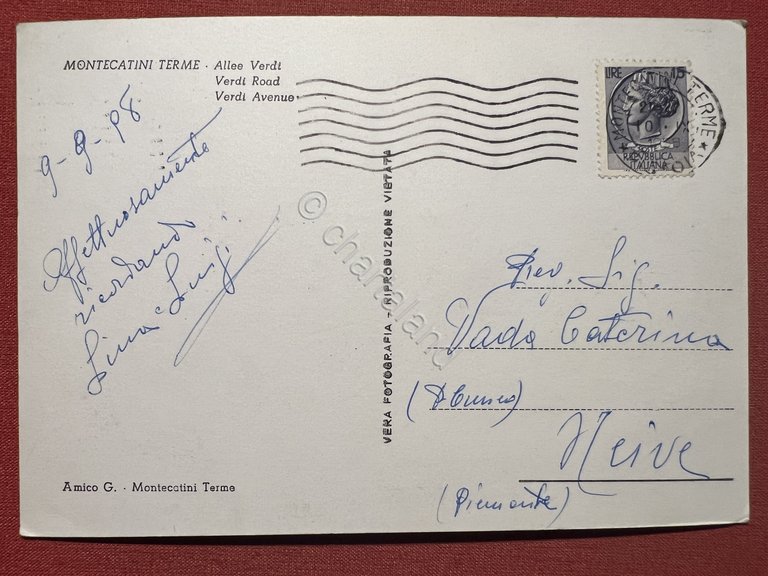 MONTECATINI TERME - Allee Verdi
Verdi Road
Verdi Avenue
9-9-58
Affettuosamente
ricordando
Lina Luigi
Amico G. - Montecatini Terme
VERA FOTOGRAFIA - RIPRODUZIONE VIETATA
LIRE 15
REPUBBLICA
ITALIANA
MONTECATINI TERME
© chartaland
Sig.
Vada Caterina
Neive
(Piemonte)